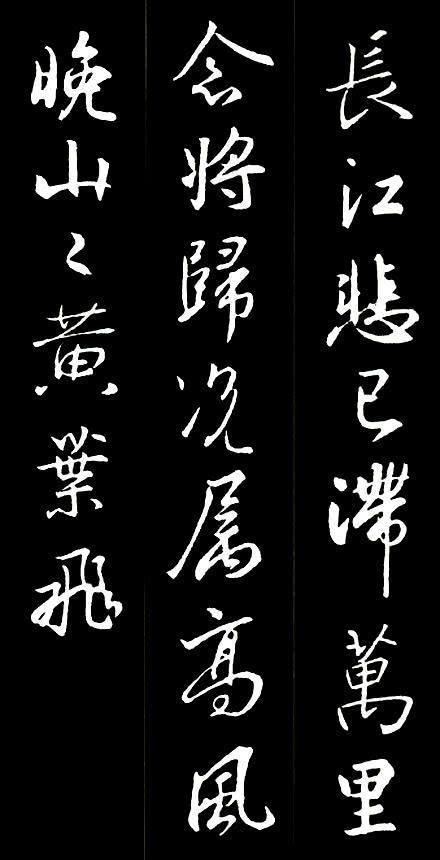 長江悲已滯萬里
念將歸况属高風
晚山々黄葉飛